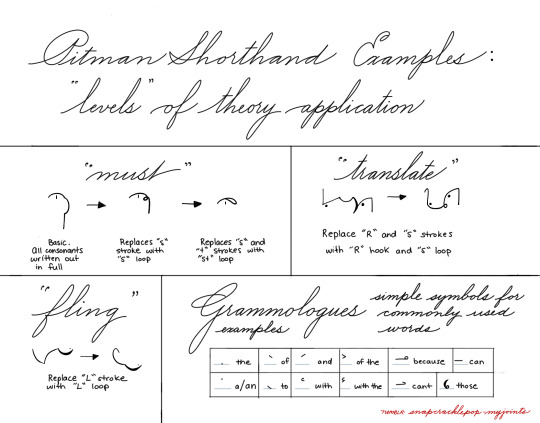 Pitman Shorthand Examples:
"levels" of theory application
"must"
Basic.
All consonants
written out
in full
Replaces "s"
stroke with
"s" loop
Replaces "s" and
"t" strokes with
"st" loop
"translate"
Replace "R" and "s" strokes
with "R" hook and "s" loop
"fling"
Replace "L" stroke
with "L" loop
Grammologues
examples
simple symbols for
commonly used
words
the of and of the because can
a/an to with with the cant those
TUMBLR snapcracklepop-myjoints